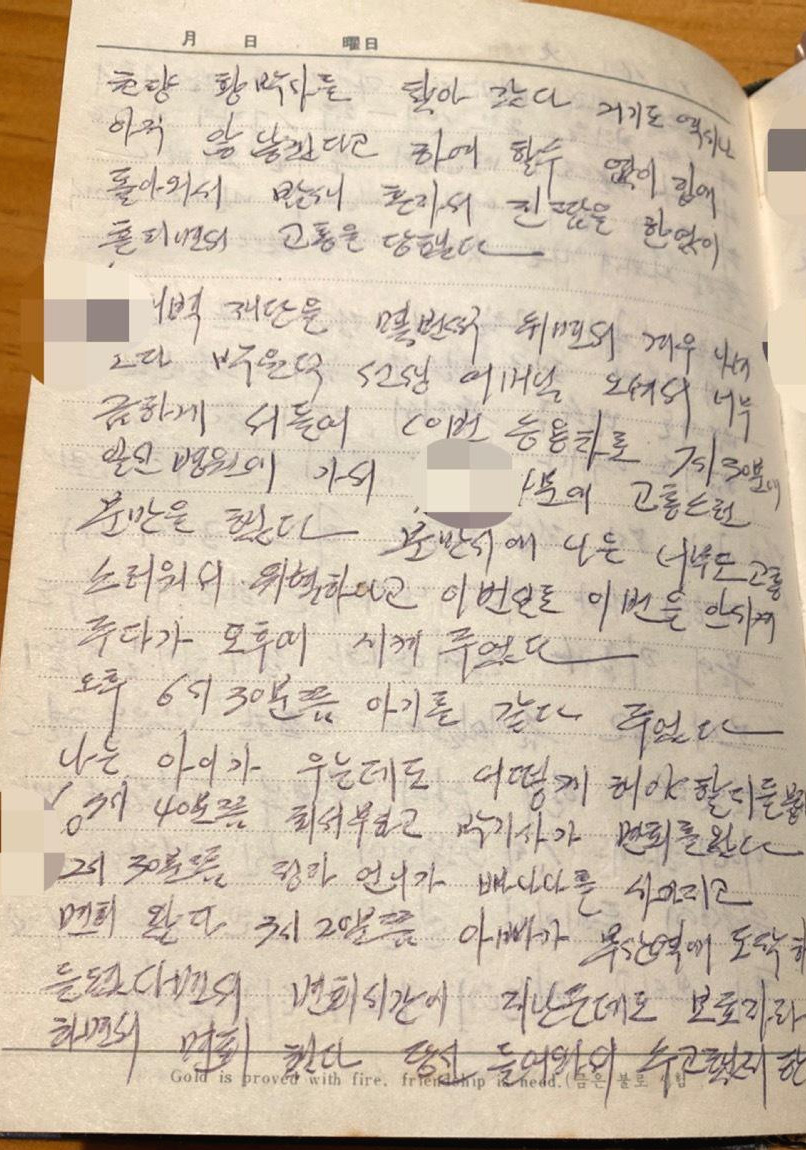 月 日 曜日
황박사를 찾아 갔다 거기도 역시나
아직 않 낳는다고 하여 할수 없이 집에
돌아와서 밤새 혼자서 진땀을 한없이
흘리면서 고통을 당했다
재단을 몇번씩 뛰면서 겨우
선생 어머님 오셔서 너무
급하게 서들어 승용차로 7시 30분에
일신 병원에 가서 분에 고통스런
분만을 했다 분만시에 나는 너무도 고통
스러워서 위험하다고 이번을 안시켜
주다가 오후에 시켜 주었다
오후 6시 30분쯤 아기를 갖다 주었다
나는 아이가 우는데도 어떻게 해야 할지를
40분쯤 박기사가 면회를 왔다
2시 30분쯤 언니가 빠나나를 사가지고
면회 왔다 3시 20분쯤 아빠가 부산역에 도착
면회시간이 지났는데도
하면서 면회 했다 당신 들어와 수고했지
Gold is proved with fire, friendship in need.(금은 불로 시험